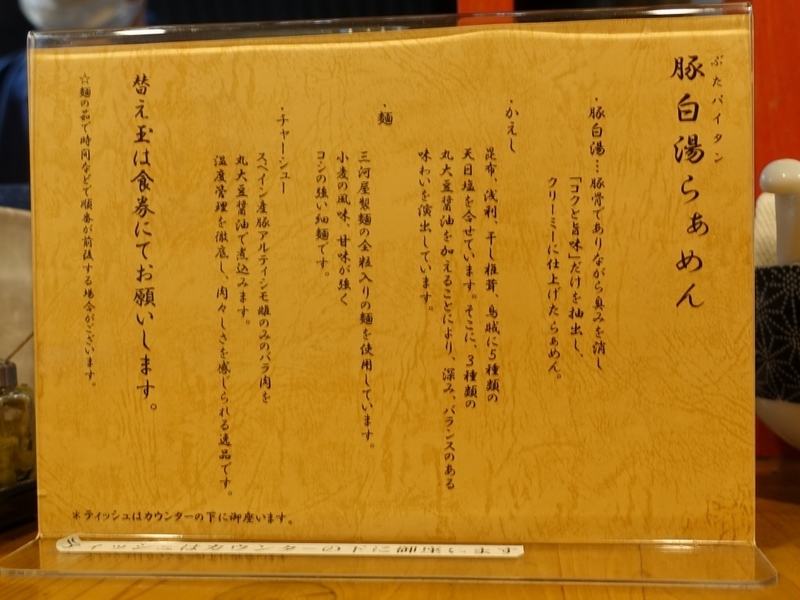 豚白湯らぁめん
ぶたパイタン
・豚白湯…豚骨でありながら臭みを消し
「コクと旨味」だけを抽出し、
クリーミーに仕上げたらぁめん。
・かえし
昆布、浅利、干し椎茸、烏賊に5種類の
天日塩を合せています。そこに、3種類の
丸大豆醤油を加えることにより、深み、バランスのある
味わいを演出しています。
・麺
三河屋製麺の全粒入りの麺を使用しています。
小麦の風味、甘味が強く
コシの強い細麺です。
・チャーシュー
スペイン産豚アルティシモ雌のみのバラ肉を
丸大豆醤油で煮込みます。
温度管理を徹底し、肉々しさを感じられる逸品です。
替え玉は食券にてお願いします。
☆麺の茹で時間などで順番が前後する場合がございます。
※ティッシュはカウンターの下に御座います。
ティッシュはカウンターの下に御座います